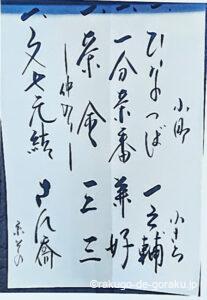 小町
一、ひなつば 一之輔
一、一分茶番 兼好
一、茶金 三三
―仲入り―
一、文七元結 さん喬
©rakugo-de-goraku.jp